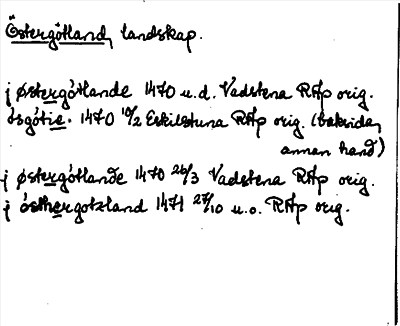 Östergötland, landskap.
j østergötlande 1470 u.d. Vadstena RAp orig.
ösgötie. 1470 10/2 Eskilstuna RAp orig. (baksida,
annan hand)
j østergötlande 1470 26/3 Vadstena RAp orig.
j östhergotzland 1471 27/10 u.o. RAp orig.